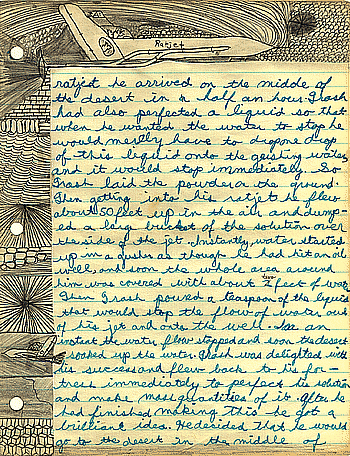 Ratjet
ratjet he arrived on the middle of
the desert in a half an hour. Trash
had also perfected a liquid so that
when he wanted the water to stop he
would merely have to drop one drop
of this liquid onto the geisting water
and it would stop immediately. So
Trash laid the powder on the ground.
Then getting into his ratjet he flew
about 50 feet up in the air and dump-
ed a large bucket of the solution over
the side of the jet. Instantly water started
up in a gusher as though he had hit an oil
well, and soon the whole area around
him was covered with about feet of water
Then Trash poured a teaspoon of the liquid
that would stop the flow of water out
of his jet and onto the well. In an
instant the water flow stopped and soon the desert
soaked up the water. Trash was delighted with
his success and flew back to his for-
tress immediately to perfect his solution
and make mass quantities of it. After he
had finished making this he got a
brilliant idea. He desided that he would
go to the desert in the middle of